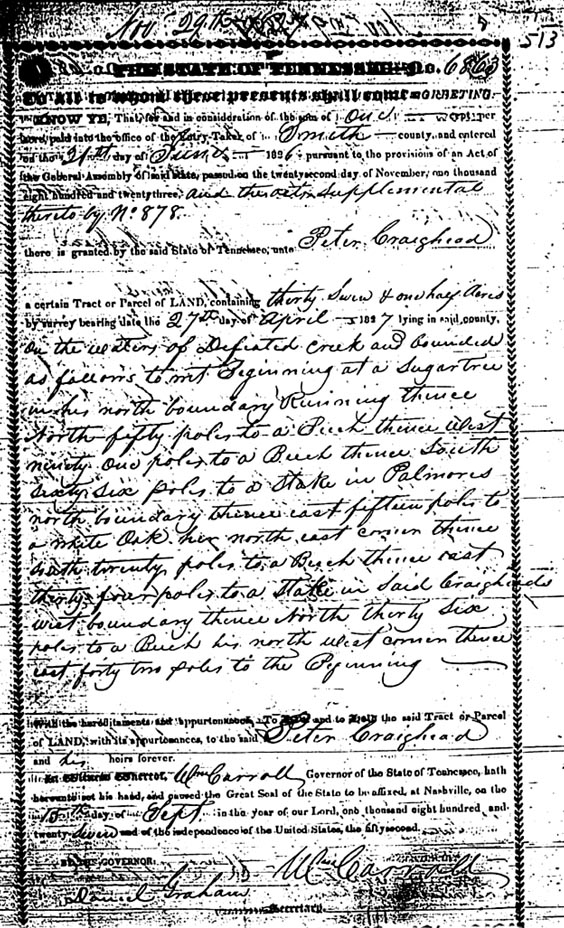 Nov 29th
513
THE STATE OF TENNESSEE No. 6863
To all to whom these presents shall come GREETING:
KNOW YE, That, for and in consideration of the sum of One per
paid into the office of the Entry-Taker of Smith county, and entered
on the day of June 1826 pursuant to the provisions of an Act of
the General Assembly of said State, passed on the twenty second day of November, one thousand
eight hundred and twenty three, and the supplemental
thereto by No 878.
there is granted by the said State of Tennessee, unto Peter Craighead
a certain Tract or Parcel of LAND, containing thirty Seven & one half Acres
by survey bearing date the 27th day of April 1827 lying in said county,
on the waters of Defeated Creek and bounded
as follows to wit Beginning at a Sugartree
in his north boundary Running thence
North fifty poles to a Beech thence West
ninety One poles to a Beech thence South
Sixty Six poles to a Stake in Palmores
north boundary thence east fifteen poles to
a White Oak his north east corner thence
South twenty poles to a Beech thence east
thirty four poles to a Stake in Said Craigheads
west boundary thence North thirty Six
poles to a Beech his north west corner thence
east forty two poles to the Beginning
With the hereditaments and appurtenances. To Have and to Hold the said Tract or Parcel
of LAND, with its appurtenances, to the said Peter Craighead
and his heirs forever.
In Witness Whereof, Wm Carroll Governor of the State of Tennessee, hath
hereunto set his hand, and caused the Great Seal of the State to be affixed, at Nashville, on the
day of Sept. in the year of our Lord, one thousand eight hundred and
twenty seven and of the independence of the United States, the fifty second.
BY THE GOVERNOR. Wm Carroll
Daniel Graham
Secretary